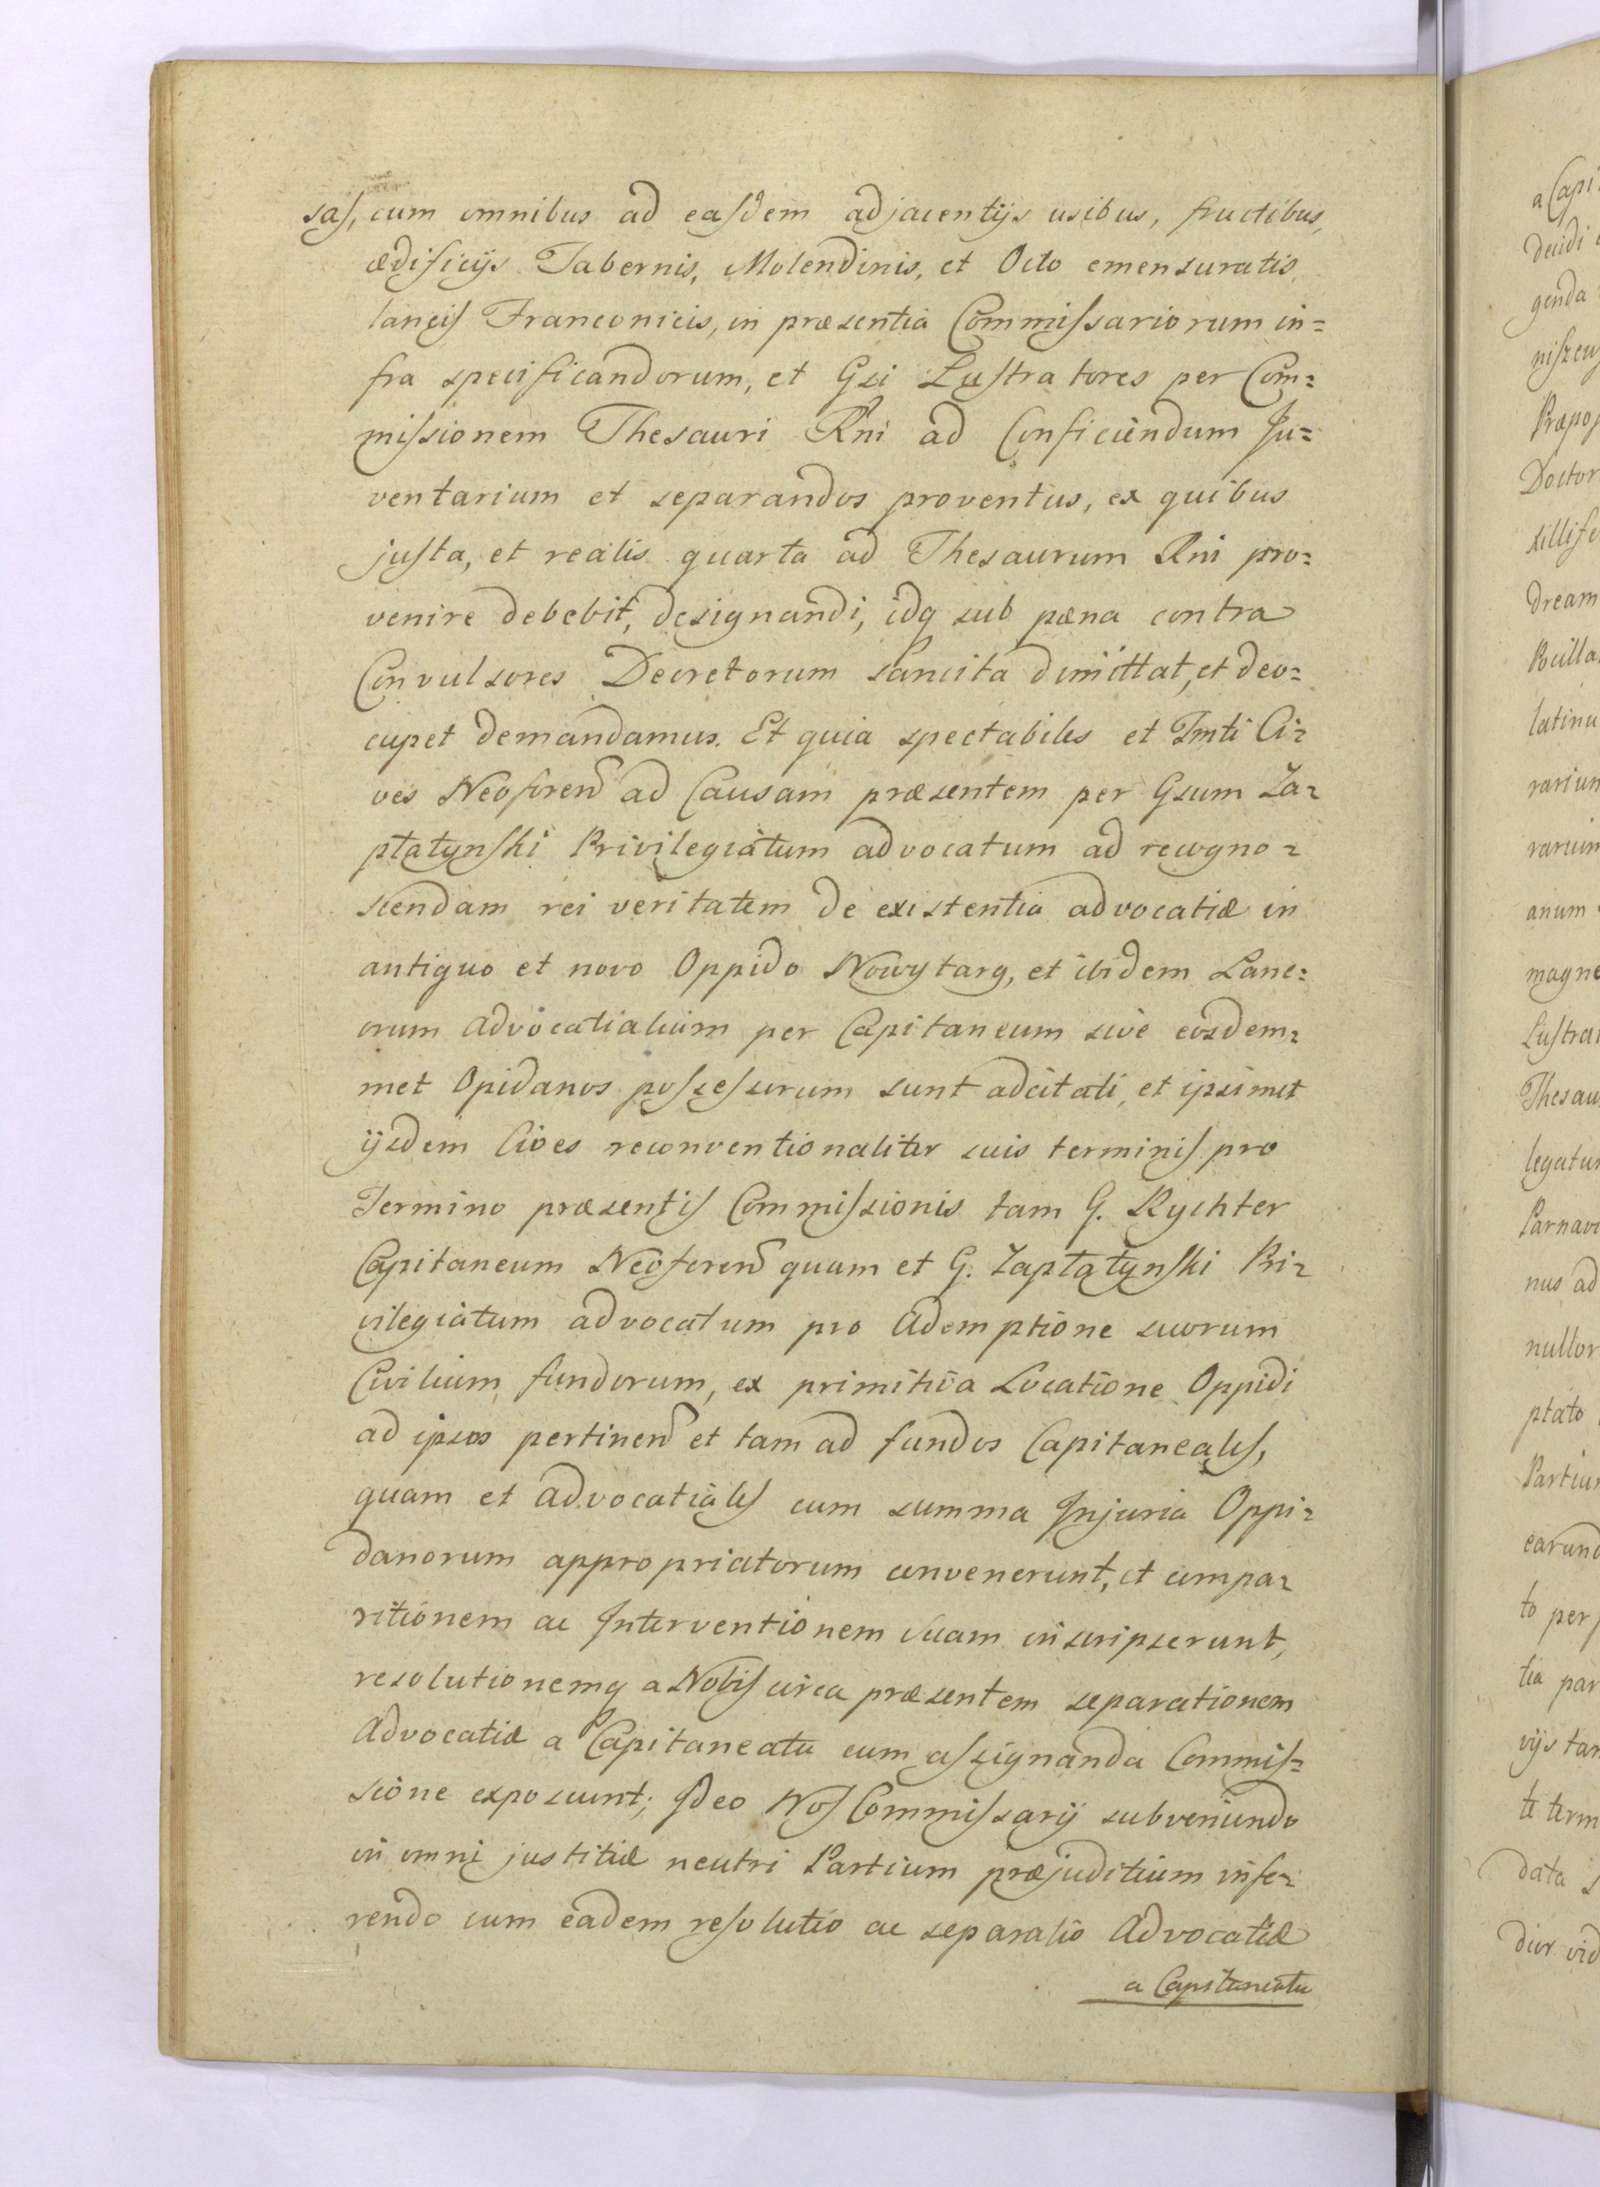 sas, cum omnibus ad easdem adjacentijs usibus, fructibus,
ædificijs Tabernis, Molendinis, et Octo emensuratis
laneis Franconicis, in præsentia Commissariorum in=
fra specificandorum, et Gsi Lustratores per Com=
missionem Thesauri Rni ad Conficiendum In=
ventarium et separandos proventus, ex quibus
justa, et realis quarta ad Thesaurum Rni pro=
venire debebit, designandi, idq sub pæna contra
Convulsores Decretorum sancita dimittat, et deo=
cupet demandamus. Et quia spectabiles et Fmti Ci=
ves Neoforen ad Causam præsentem per Gsum Za=
ptatynski Privilegiatum advocatum ad recogno=
scendam rei veritatem de existentia advocatiæ in
antiquo et novo Oppido Nowytarg, et ibidem Lane=
orum advocatialium per Capitaneum sive eosdem=
met Opidanos possessorum sunt adcitati, et ipsimet
ijsdem Cives reconventionaliter suis terminis pro
Termino præsentis Commissionis tam G. Rychter
Capitaneum Neoforen quam et G. Zaptatynski Pri=
vilegiatum advocatum pro Ademptione suorum
Civilium fundorum, ex primitiva Locatione Oppidi
ad ipsos pertinen et tam ad fundos Capitaneales,
quam et advocatiales cum summa Injuria Oppi=
danorum appropriatorum convenerunt, et compa=
ritionem ac Interventionem suam inscripserunt,
resolutionemq a Nobis circa præsentem separationem
Advocatiæ a Capitaneatu cum assignanda Commis=
sione exposcunt; Ideo Nos Commissarij subveniendo
in omni justitiæ neutri Partium præjuditium infe=
rendo cum eadem resolutio ac separatio Advocatiæ
a Capitaneatu
a Capi
decidi
genda
niszew
Præpos
Doctor
xillife
dream
Pocilla
latinu
rarium
rarium
anum
magne
Lustrat
Thesau
legatu
Parnavi
nus ad
nullor
ptato
Partiu
earund
to per
tia par
vijs tam
te term
data s
dior vid